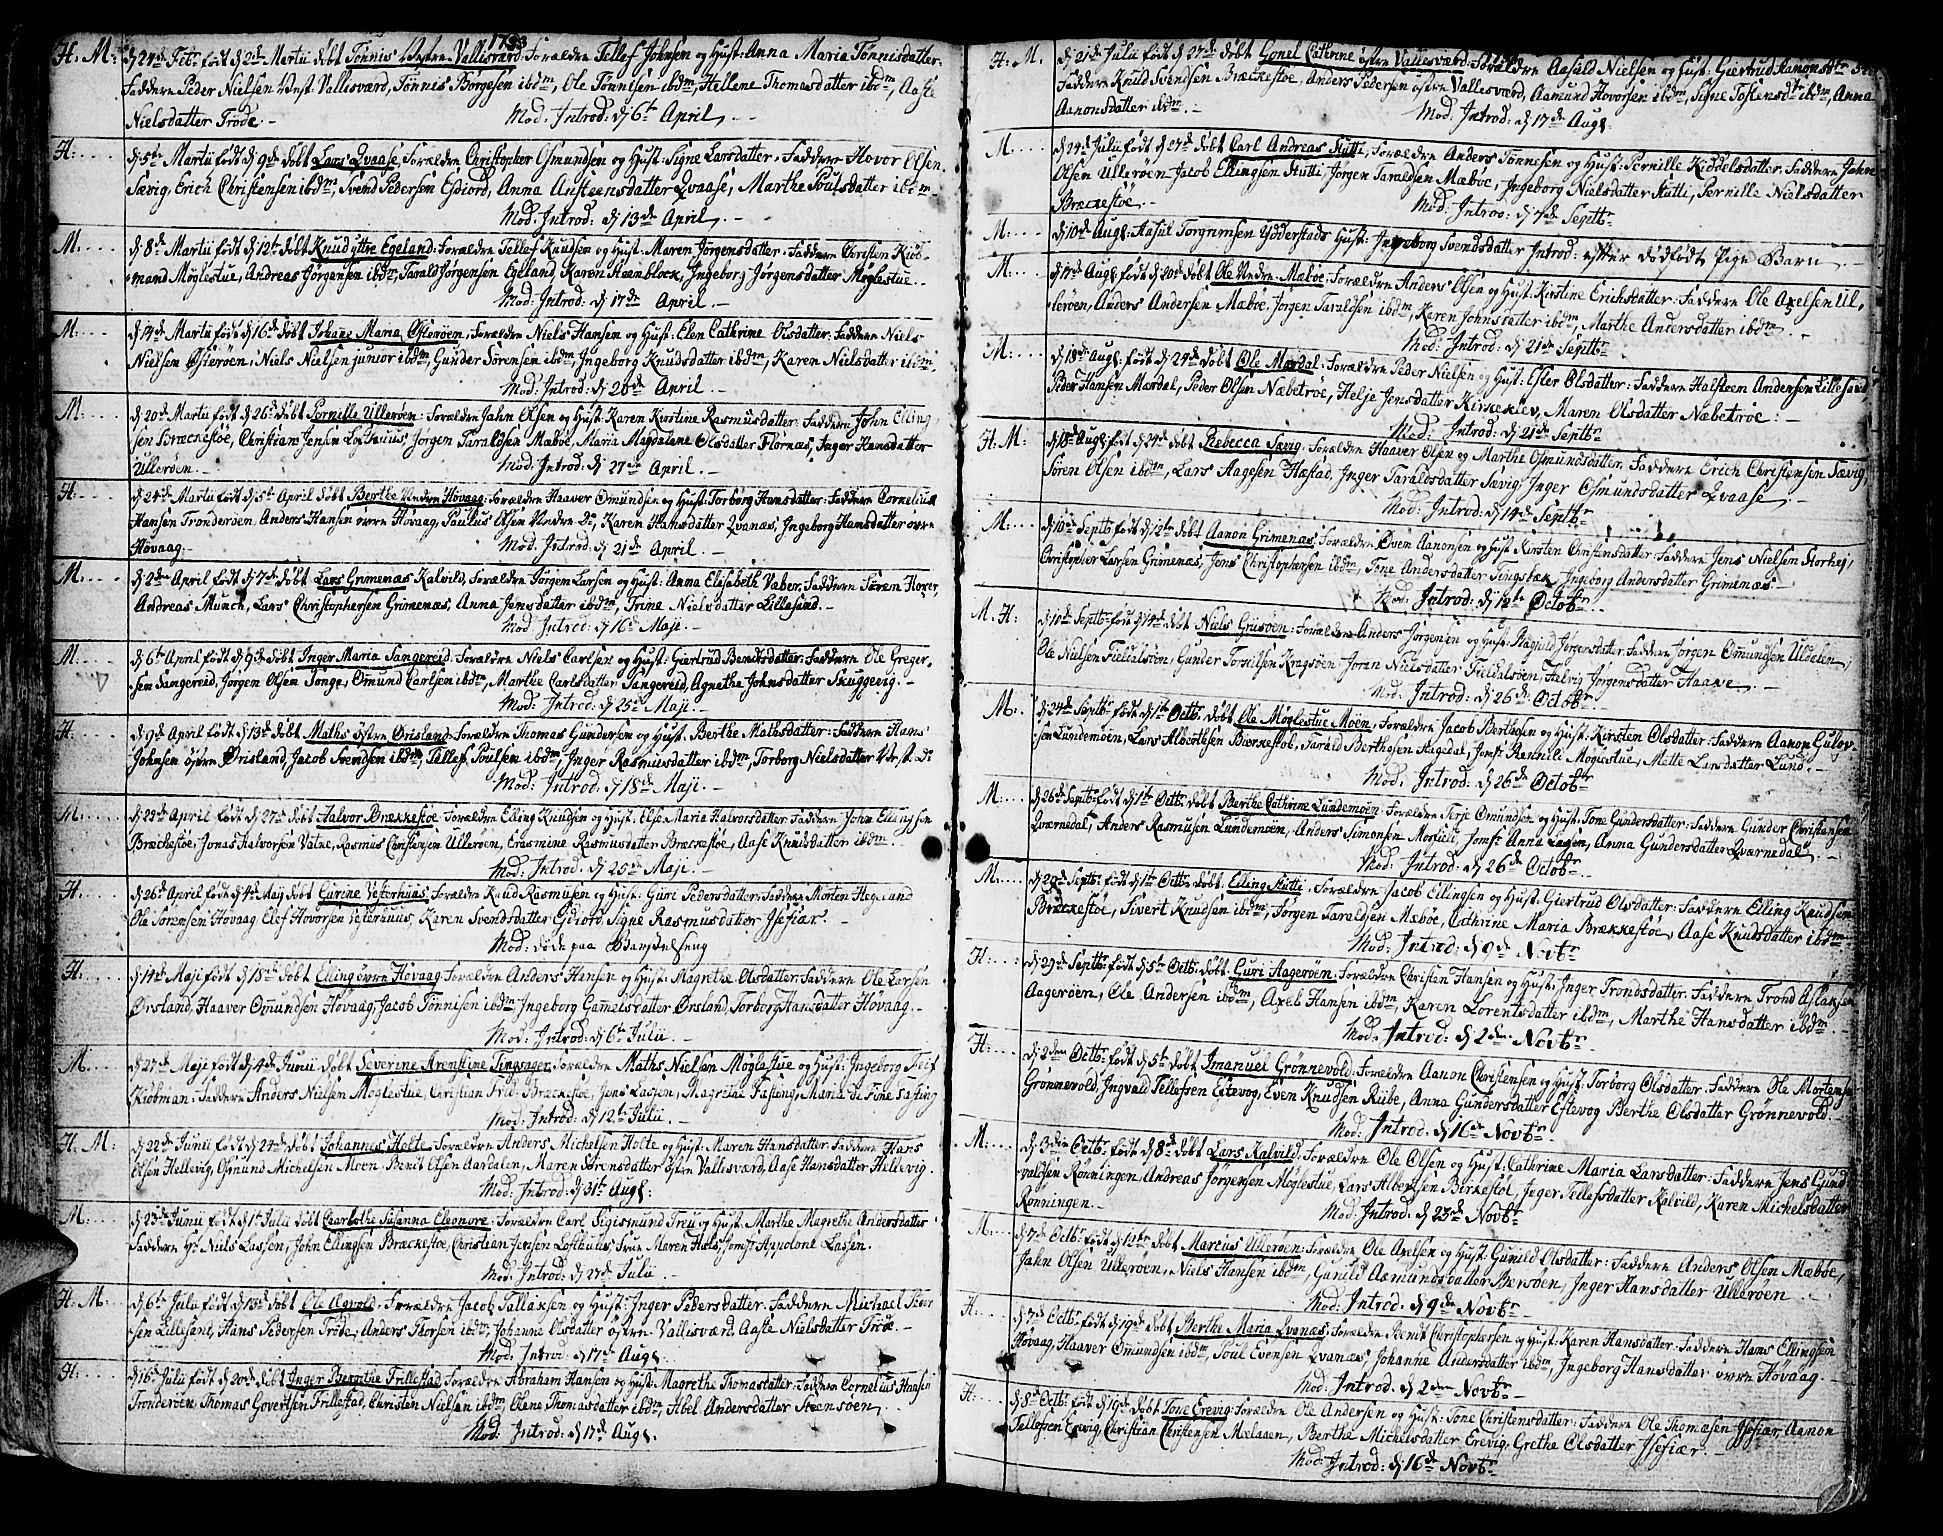 1793
H. M: d 24de Feb: født d 2de Martii døbt Tønnis Vestre Vallesværd. Forældre Tellef Johnsen og Hust: Anna Maria Tønnisdatter.
Faddere Peder Nielsen Vest Vallesværd, Tønnis Børgesen ibdm, Ole Tønnesen ibdm, Hellene Thomasdatter ibdm, Aase
Nielsdatter Trøde. Mod. Introd: d 6te April.
H. d 5te Martii født d 9de døbt Lars Qvaase, Forældre Christopher Osmundsen og Hust: Signe Larsdatter. Faddere Hovor Olsen
Sævig, Erich Christensen ibdm, Svend Pedersen Esdiord, Anna Austeensdatter Qvaase, Marthe Poulsdatter ibdm
Mod. Introd: d 13de April.
M. d 8de Martii født d 12te døbt Knud Yttre Egeland: Forældre Tellef Knudsen og Hust: Maren Jørgensdatter: Faddere Christen Kiøb-
mand Møglestue, Andreas Jørgensen ibdm, Tarald Jørgensen Egeland, Karen Haenblock, Ingeborg Jørgensdatter Møglestue.
Mod: Introd: d 17de April.
M. d 14de Martii født d 16de døbt Johane Maria Østerøen: Forældre Niels Hansen og Hust: Elen Cathrine Olsdatter: Faddere Niels
Nielsen Østerøen, Niels Nielsen junior ibdm, Gunder Sørensen ibdm, Ingeborg Knudsdatter ibdm, Karen Nielsdatter ibdm.
Mod: Introd: d 20de April.
M. d 20de Martii født d 26de døbt Pernille Ullerøen: Forældre Jahn Olsen og Hust: Karen Kirstine Rasmusdatter: Faddere John Elling
sen Brækkestøe, Christian Jensen Lofthuus, Jørgen Taraldsen Mæbøe, Maria Magdalene Olsdatter Flørnæs, Inger Hansdatter
Ullerøen. Mod: Introd: d 27de April.
H. d 24de Martii født d 5te April døbt Berthe Nedre Høvaag: Forældre Haaver Omundsen og Hust: Torborg Hansdatter: Faddere Cornelius
Hansen Trønderøen, Anders Hansen øvre Høvaag, Paulus Olsen Nedre Do, Karen Hansdatter Qvanæs, Ingeborg Hansdatter øvre
Høvaag. Mod: Introd: d 21de April.
M. d 2den April født d 7de døbt Lars Grimenæs Kalvild, Forældre Jørgen Larsen og Hust: Anna Elisabeth Vabor. Faddere Søren Hoxer,
Andreas Munch, Lars Christophersen Grimenæs, Anna Jensdatter ibdm, Trine Nielsdatter Lillesand.
Mod: Introd: d 16de Maji.
M. d 6te April født d 9de døbt Inger Maria Sangereid. Forældre Niels Carlsen og Hust: Giertrud Bendtsdatter. Faddere Ole Greger-
sen Sangereid, Jørgen Olsen Tønge, Omund Carlsen ibdm, Marthe Carlsdatter Sangereid, Agnethe Johnsdatter Skuggevig.
Mod: Introd: d 25de Maji.
H. d 9de April født d 13de døbt Maths Østre Ørisland: Forældre Thomas Gundersen og Hust: Berthe Mathsdatter: Faddere Hans
Johnsen østre Ørisland, Jacob Svendsen ibdm, Tellef Poulsen ibdm, Inger Rasmusdatter ibdm, Torborg Nielsdatter Vest. Do
Mod: Introd: d 18de Maji.
M. d 23de April født d 27de døbt Halvor Brækkestøe Forældre Elling Knudsen og Hust: Else Maria Halvorsdatter: Faddere John Ellingsen
Brækkestøe, Jonas Halvorsen Vatne, Rasmus Christensen Ullerøen, Erasmine Rasmusdatter Brækkestøe, Aase Knudsdatter ibdm.
Mod: Introd: d 25de Maji.
H. d 26de April født d 4de Maji døbt Gurine Vesterhuus: Forældre Knud Rasmusen og Hust: Guri Pedersdatter: Faddere Morten Hegeland
Ole Sørensen Høvaag, Elef Hovorsen Vesterhuus, Karen Svendsdatter Gidiord, Signe Rasmusdatter Isefiær.
Mod: døde paa Barselseng
H. d 14de Maji født d 18de døbt Elling øvre Høvaag: Forældre Anders Hansen og Hust: Magrethe Olsdatter: Faddere Ole Larsen
Ørsland, Haaver Omundsen Høvaag, Jacob Tønnisen ibdm, Ingeborg Gamelsdatter Ørsland, Torborg Hansdatter Høvaag.
Mod: Introd: d 6te Julii.
M. d 27de Maji født d 4de Junii døbt Severine Arentine Tingsager: Forældre Maths Nielsen Møglestue og Hust: Ingeborg Leif
Kiøbman: Faddere Anders Nielsen Møglestue, Christian Friis Brækkestøe, Jens Lassen, Magretha Fasting, Maria de Fine Fasting
Mod: Introd: d 12te Julii.
H. M: d 22de Junii født d 24de døbt Johannes Holte. Forældre Anders Michelsen Holte og Hust: Maren Hansdatter. Faddere Hans
Olsen Hellevig, Osmund Michelsen Moen, Bendt Elsen Aardalen, Maren Sørensdatter østre Vallesværd, Aase Hansdatter Hellevig.
Mod: Introd: d 31te Aug:
M. d 23de Junii født d 1te Julii døbt Charlothe Susanna Eleonore: Forældre Carl Sigismund Treu og Hust: Marthe Magrethe Andersdatter
Faddere Hr Niels Lassen, John Ellingsen Brækkestøe, Christian Jensen Lofthuus, Frue Maren Hals, Jomfr Appolone Lassen.
Mod: Introd: d 27de Julii.
H. M. d 6te Julii født d 13de døbt Ole Agvold: Forældre Jacob Tallaksen og Hust: Inger Pedersdatter: Faddere Michael Peder
sen Lillesand, Hans Pedersen Trøde, Anders Thorsen ibdm, Johanne Olsdatter østre Vallisværd, Aaste Nielsdatter Trøe.
Mod: Introd: d 17de Aug:
H. d 16de Julii født d 20de døbt Inger Bergitte Frillestad Forældre Abraham Hansen og Hust: Magrethe Thomasdatter: Faddere Cornelius Hansen
Trønderøen, Thomas Govertsen Frillestad, Christen Nielsen ibdm, Olene Thomasdatter ibdm, Abel Andersdatter Steensøen.
Mod: Introd: d 17de Aug:
H. M. d 21de Julii født d 27de døbt Gonel Cathrine østre Vallesværd. Forældre Aasuld Nielsen og Hust: Giertrud Aanonsdtr
Faddere Knud Svendsen Brækkestøe, Anders Pedersen østre Vallesværd, Aamund Hovorsen ibdm, Signe Tostensdtr ibdm, Anna
Aanonsdatter ibdm. Mod: Introd: d 17de Aug:
M. d 24de Julii født d 27de døbt Carl Andreas Stutti, Forældre Anders Tønnesen og Hust: Pernille Kiddelsdatter: Faddere Jahn
Olsen Ullerøen, Jacob Ellingsen Stutti, Jørgen Taraldsen Mæbøe, Ingeborg Nielsdatter Stutti, Pernille Nielsdatter
Brækkestøe. Mod: Introd: d 7de Septbr
M. d 10de Aug: Aasul Torgrimsen Ydderstads Hust: Ingeborg Svendsdatter Introd: efter dødfødt Pige Barn.
M. d 14de Aug: født d 20de døbt Ole Nedre Mæbøe. Forældre Anders Olsen og Hust: Kirstine Erichsdatter: Faddere Ole Axelsen Ul-
lerøen, Anders Andersen Mæbøe, Jørgen Taraldsen ibdm, Karen Johnsdatter ibdm, Marthe Andersdatter ibdm
Mod: Introd: d 21de Septbr
M. d 18de Aug: født d 24de døbt Ole Mørdal: Forældre Peder Nielsen og Hust: Ester Olsdatter: Faddere Halsteen Andersen Lillesand,
Peder Hansen Mørdal, Peder Olsen Næbetrøe, Helje Jensdatter Kirkekløv, Maren Olsdatter Næbetrøe.
Mod: Introd: d 21de Septbr
H. M: d 18de Aug: født d 24de døbt Rebecca Sævig: Forældre Haaver Olsen og Marthe Osmundsdatter. Faddere Erich Christensen Sævig,
Søren Olsen ibdm, Lars Aagesen Hæstad, Inger Taraldsdatter Sævig, Inger Osmundsdatter Qvaase.
Mod: Introd: d 14de Septbr
M. d 10de Septb: født d 12te døbt Aanon Grimenæs: Forældre Øven Aanonsen og Hust Kirsten Christensdatter: Faddere Jens Nielsen Storhej,
Christopher Larsen Grimenæs, Jens Christophersen ibdm, Tone Andersdatter Tingsbæk, Ingeborg Andersdatter Grimenæs.
Mod: Introd: d 12te Octobr.
M. H: d 10de Septb: født d 14de døbt Niels Grusøen: Forældre Anders Jørgensen og Hust: Aaguld Jørgensdatter: Faddere Jørgen Omundsen Uldalen,
Ole Nielsen Fieldalsøen, Gunder Torkilsen Kragsøen, Joran Nielsdatter Fieldalsøen, Helvig Jørgensdatter Haave.
Mod: Introd: d 26de Octobr.
M. d 24de Septb: født d 1te Octb: døbt Ole Møglestue Moen, Forældre Jacob Berthosen og Hust: Kirsten Olsdatter: Faddere Aanon Gulov-
sen Lundemoen, Lars Albertsen Bærkestøe, Tarald Berthosen Aagedal, Jomfr Pernille Møglestue, Mette Larsdatter Lund.
Mod: Introd: d 26de Octobr
M. d 26de Septb: født d 1te Octb: døbt Berthe Cathrine Lundemoen: Forældre Terje Omundsen og Hust: Tone Gundersdatter: Faddere Gunder Christensen
Qværnedal, Anders Rasmusen Lundemoen, Anders Simonsen Moshild, Jomfr Anna Lagen, Anna Gundersdatter Qværnedal.
Mod: Introd: d 26de Octobr
M. d 29de Septb: født d 1te Octb: døbt Elling Stutti: Forældre Jacob Ellingsen og Hust: Giertrud Olsdatter: Faddere Elling Knudsen
Brækkestøe, Sivert Knudsen ibdm, Jørgen Taraldsen Mæbøe, Cathrine Maria Brækkestøe, Aase Knudsdatter ibdm.
Mod: Introd: d 9de Novbr
H. d 29de Septb: født d 5te Octb: døbt Guri Aagerøen: Forældre Christen Hansen og Hust: Inger Trondsdatter: Faddere Trond Aslaksen
Aagerøen, Ole Andersen ibdm, Axel Hansen ibdm, Karen Lorentsdatter ibdm, Marthe Hansdatter ibdm.
Mod: Introd: d 2den Novbr.
H. d 2den Octb: født d 5te døbt Imanuel Grønnevold: Forældre Aanon Christensen og Hust: Torborg Olsdatter: Faddere Ole Mortensen
Grønnevold, Ingvald Tellefsen Estevog, Even Knudsen Ribe, Anna Gundersdatter Estevog, Berthe Olsdatter Grønnevold.
Mod: Introd: d 16de Novbr.
M. d 3die Octb: født d 8de døbt Lars Kalvild: Forældre Ole Olsen og Hust: Cathrine Maria Larsdatter: Faddere Jens Gund-
valdsen Rønningen, Andreas Jørgensen Møglestue, Lars Albertsen Birkestøl, Inger Tellefsdatter Kalvild, Karen Michelsdatter
Rønningen. Mod: Introd: d 23de Novbr
M. d 7de Octb: født d 12te døbt Marcus Ullerøen: Forældre Ole Axelsen og Hust: Gunild Olsdatter: Faddere Anders Olsen Mæbøe,
Jahn Olsen Ullerøen, Niels Hansen ibdm, Gunild Asmundsdatter Bersøen, Inger Hansdatter Ullerøen
Mod: Introd: d 9de Novbr
H. d 7de Octb: født d 19de døbt Berthe Maria Qvanæs: Forældre Bendt Christophersen og Hust: Karen Hansdatter: Faddere Hans Ellingsen
Høvaag, Haaver Omundsen ibdm, Poul Evensen Qvanæs, Johanne Andersdatter ibdm, Ingeborg Hansdatter øvre Høvaag.
Mod: Introd: d 2den Novbr
H. d 8de Octb: født d 19de døbt Tone Erevig: Forældre Ole Andersen og Hust: Tone Christensdatter: Faddere Ole Thomæsen Isefiær, Aanon
Tellefsen Erevig, Christian Christensen Mælaaen, Berthe Michelsdatter Erevig, Grethe Olsdatter Isefiær.
Mod: Introd: d 16de Novbr